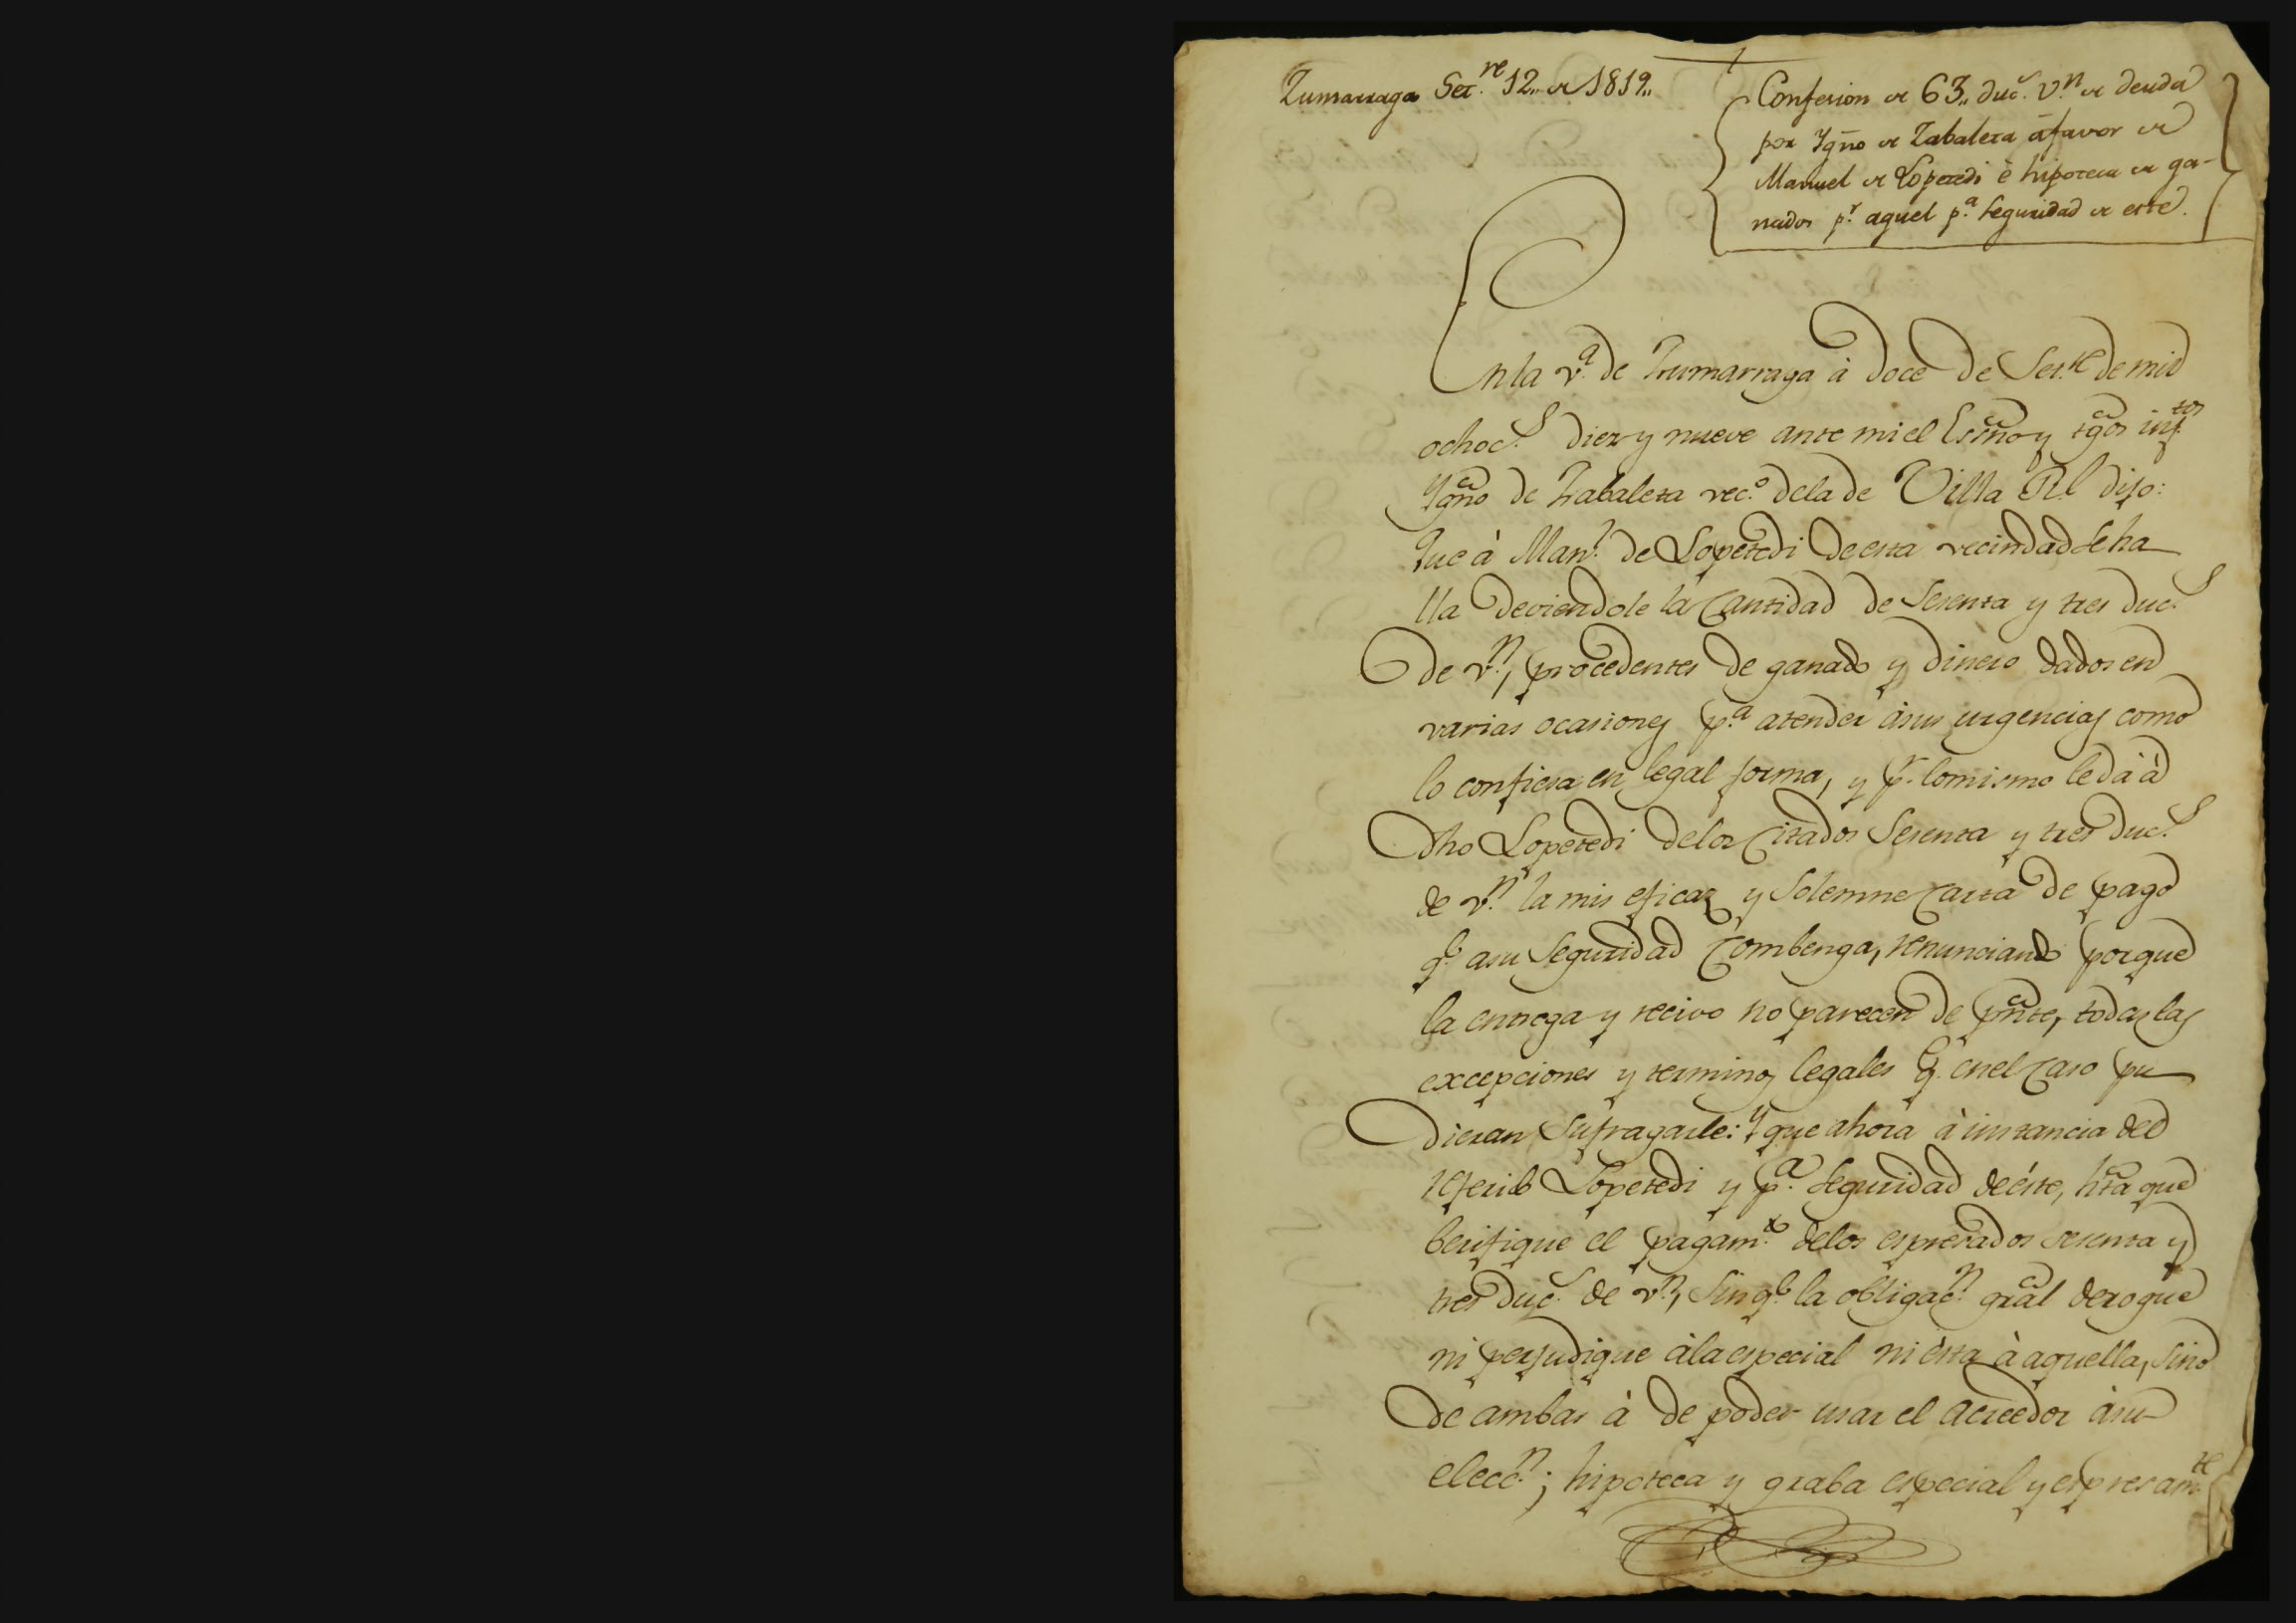 Zumarraga Set.re 12,, de 1819,,
Confesion de 63,, duc.s v.n de deuda
por Ygño de Zabaleta á favor de
Manuel de Loperedi è hipoteca de ga-
nados p.r aquel p.a seguridad de este.
En la v.a de Zumarraga à doce de Set.re de mil
ochoc.s diez y nueve ante mi el Esño y tgos inf.tos
Ygño de Zabaleta vec.o de la de Villa R.l dijo:
Que à Man.l de Loperedi de esta vecindad se ha
lla deviendole la Cantidad de Sesenta y tres duc.s
de v.n, procedentes de ganado y dinero dados en
varias ocasiones p.a atender à sus urgencias como
lo confiesa en legal forma, y p.r lo mismo le dà à
dho Loperedi de los Citados Sesenta y tres duc.s
de v.n la mas eficaz y Solemne Carta de pago
q.e a su Seguridad Combenga, renunciando porque
la entrega y recivo no parecen de pñte, todas las
excepciones y terminos legales q.e en el Caso pu
dieran Sufragarle: Y que ahora à instancia del
referido Loperedi y p.a Seguridad de éste, hta que
berifique el pagam.to de los espresados sesenta y
tres duc.s de v.n, Sin q.e la obligac.n gral derogue
ni perjudique à la especial ni ésta à aquella, Sino
de ambas à de poder usar el acreedor à su
elecc.n; hipoteca y graba especial y espresam.te